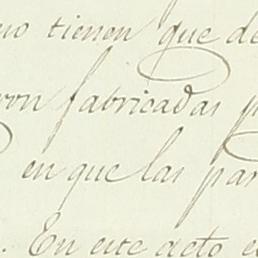 no tienen que de
ron fabricadas p
en que las par
. En este acto e